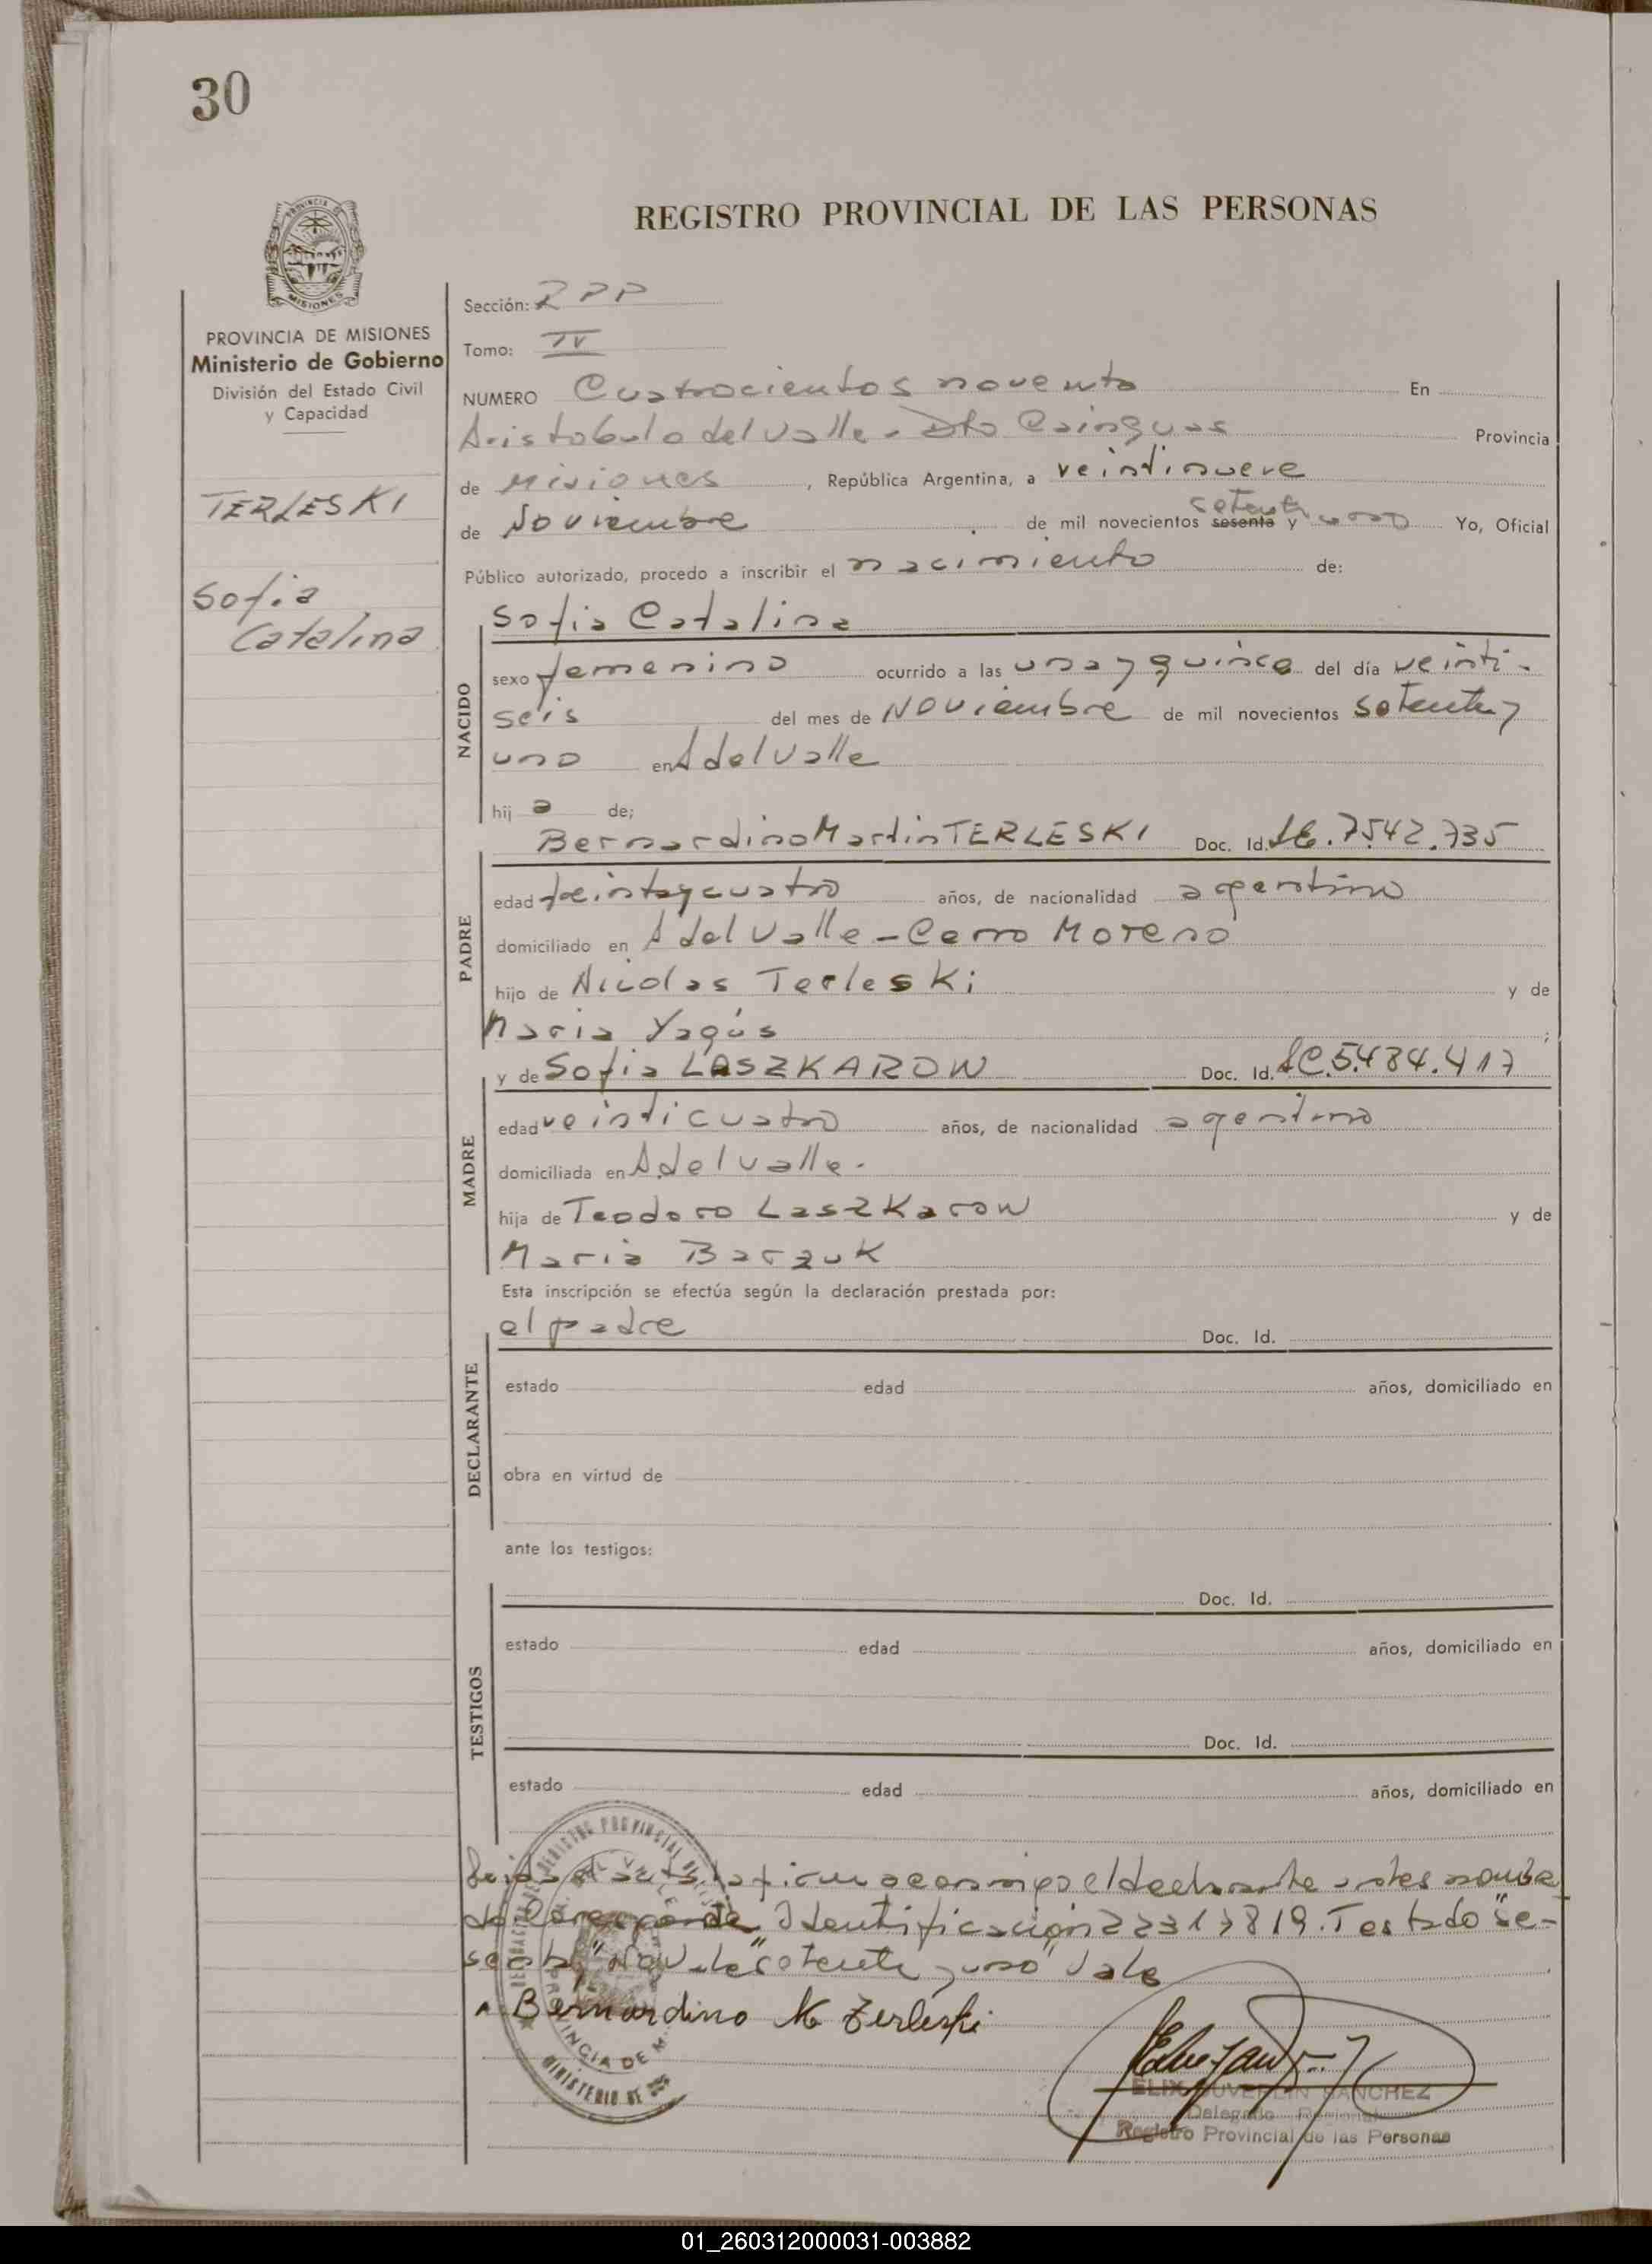 30
REGISTRO PROVINCIAL DE LAS PERSONAS
PROVINCIA DE MISIONES
Ministerio de Gobierno
División del Estado Civil
y Capacidad
TERLESKI
Sofia
Catalina
Sección: RPP
Tomo: IV
NUMERO Cuatrocientos noventa En
Aristobulo del Valle - Dto Cainguas Provincia
de Misiones, República Argentina, a veintinueve
setenta
de Noviembre de mil novecientos sesenta y uno Yo, Oficial
Público autorizado, procedo a inscribir el nacimiento de:
NACIDO
Sofia Catalina
sexo femenino ocurrido a las una y quince del día veinti-
seis del mes de Noviembre de mil novecientos setenta y
uno en A del Valle
hij a de;
PADRE
Bernardino Martin TERLESKI Doc. Id. LE. 7.542.735
edad treinta y cuatro años, de nacionalidad argentino
domiciliado en A del Valle - Cerro Moreno
hijo de Nicolas Terleski y de
Maria Yagús ;
MADRE
y de Sofia LASZKAROW Doc. Id. LC. 5.484.417
edad veinticuatro años, de nacionalidad agentina
domiciliada en A del Valle.
hija de Teodoro Laszkarow y de
Maria Barzuk
Esta inscripción se efectúa según la declaración prestada por:
DECLARANTE
el padre Doc. Id.
estado edad años, domiciliado en
obra en virtud de
ante los testigos:
TESTIGOS
Doc. Id.
estado edad años, domiciliado en
Doc. Id.
estado edad años, domiciliado en
Leida el acta la firma conmigo el declarante antes nombra
do Identificación 22317819. Testado "se-
senta" No vale "setenta y uno" Vale
Bernardino M Terleski
SANCHEZ
Delegado Regional
Registro Provincial de las Personas
01_260312000031-003882